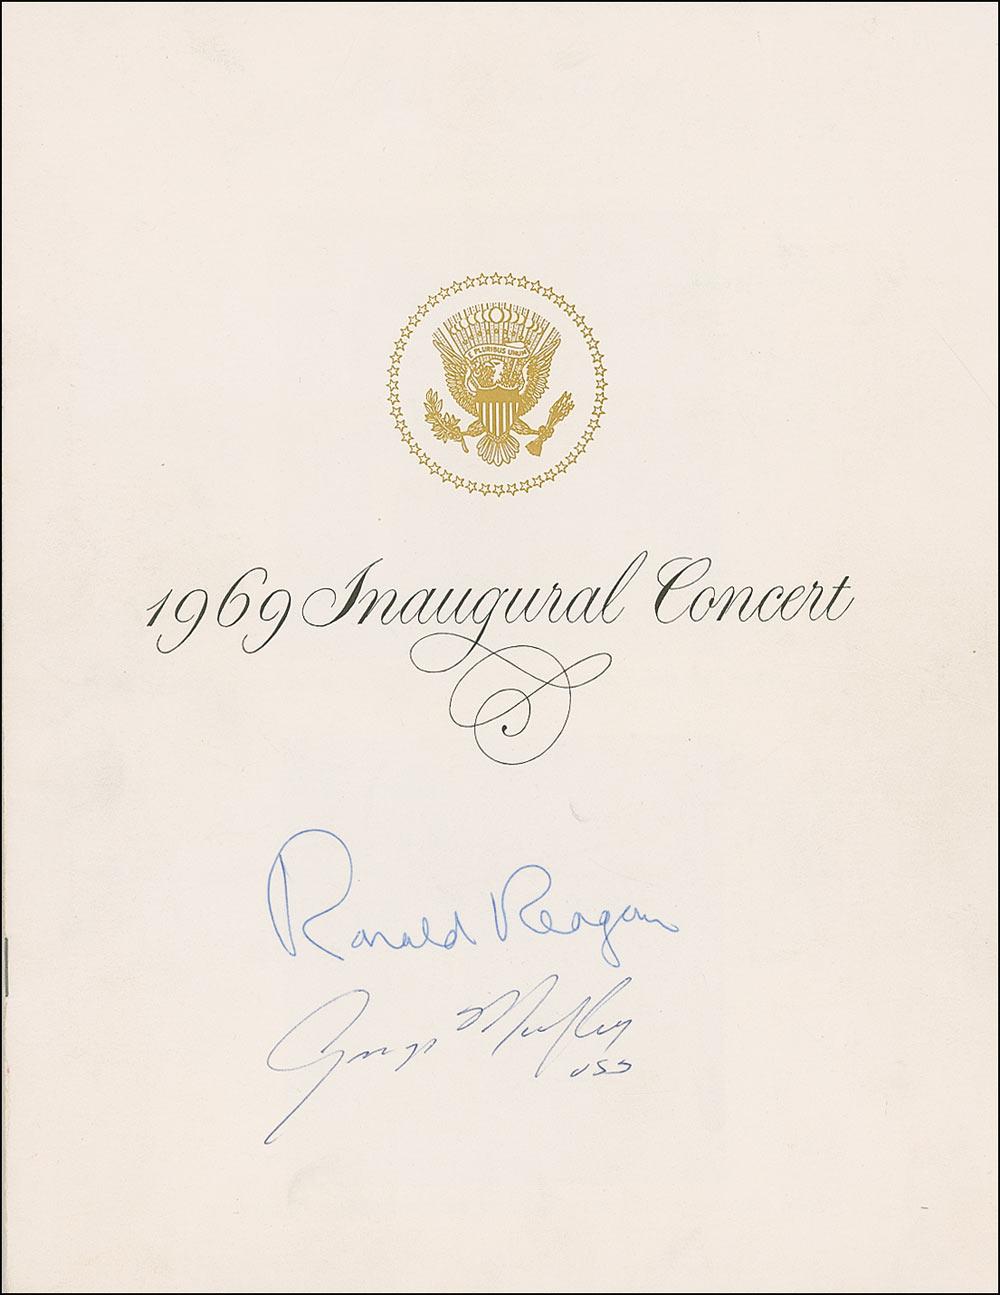 E PLURIBUS UNUM
1969 Inaugural Concert
Ronald Reagan
George Murphy
USS